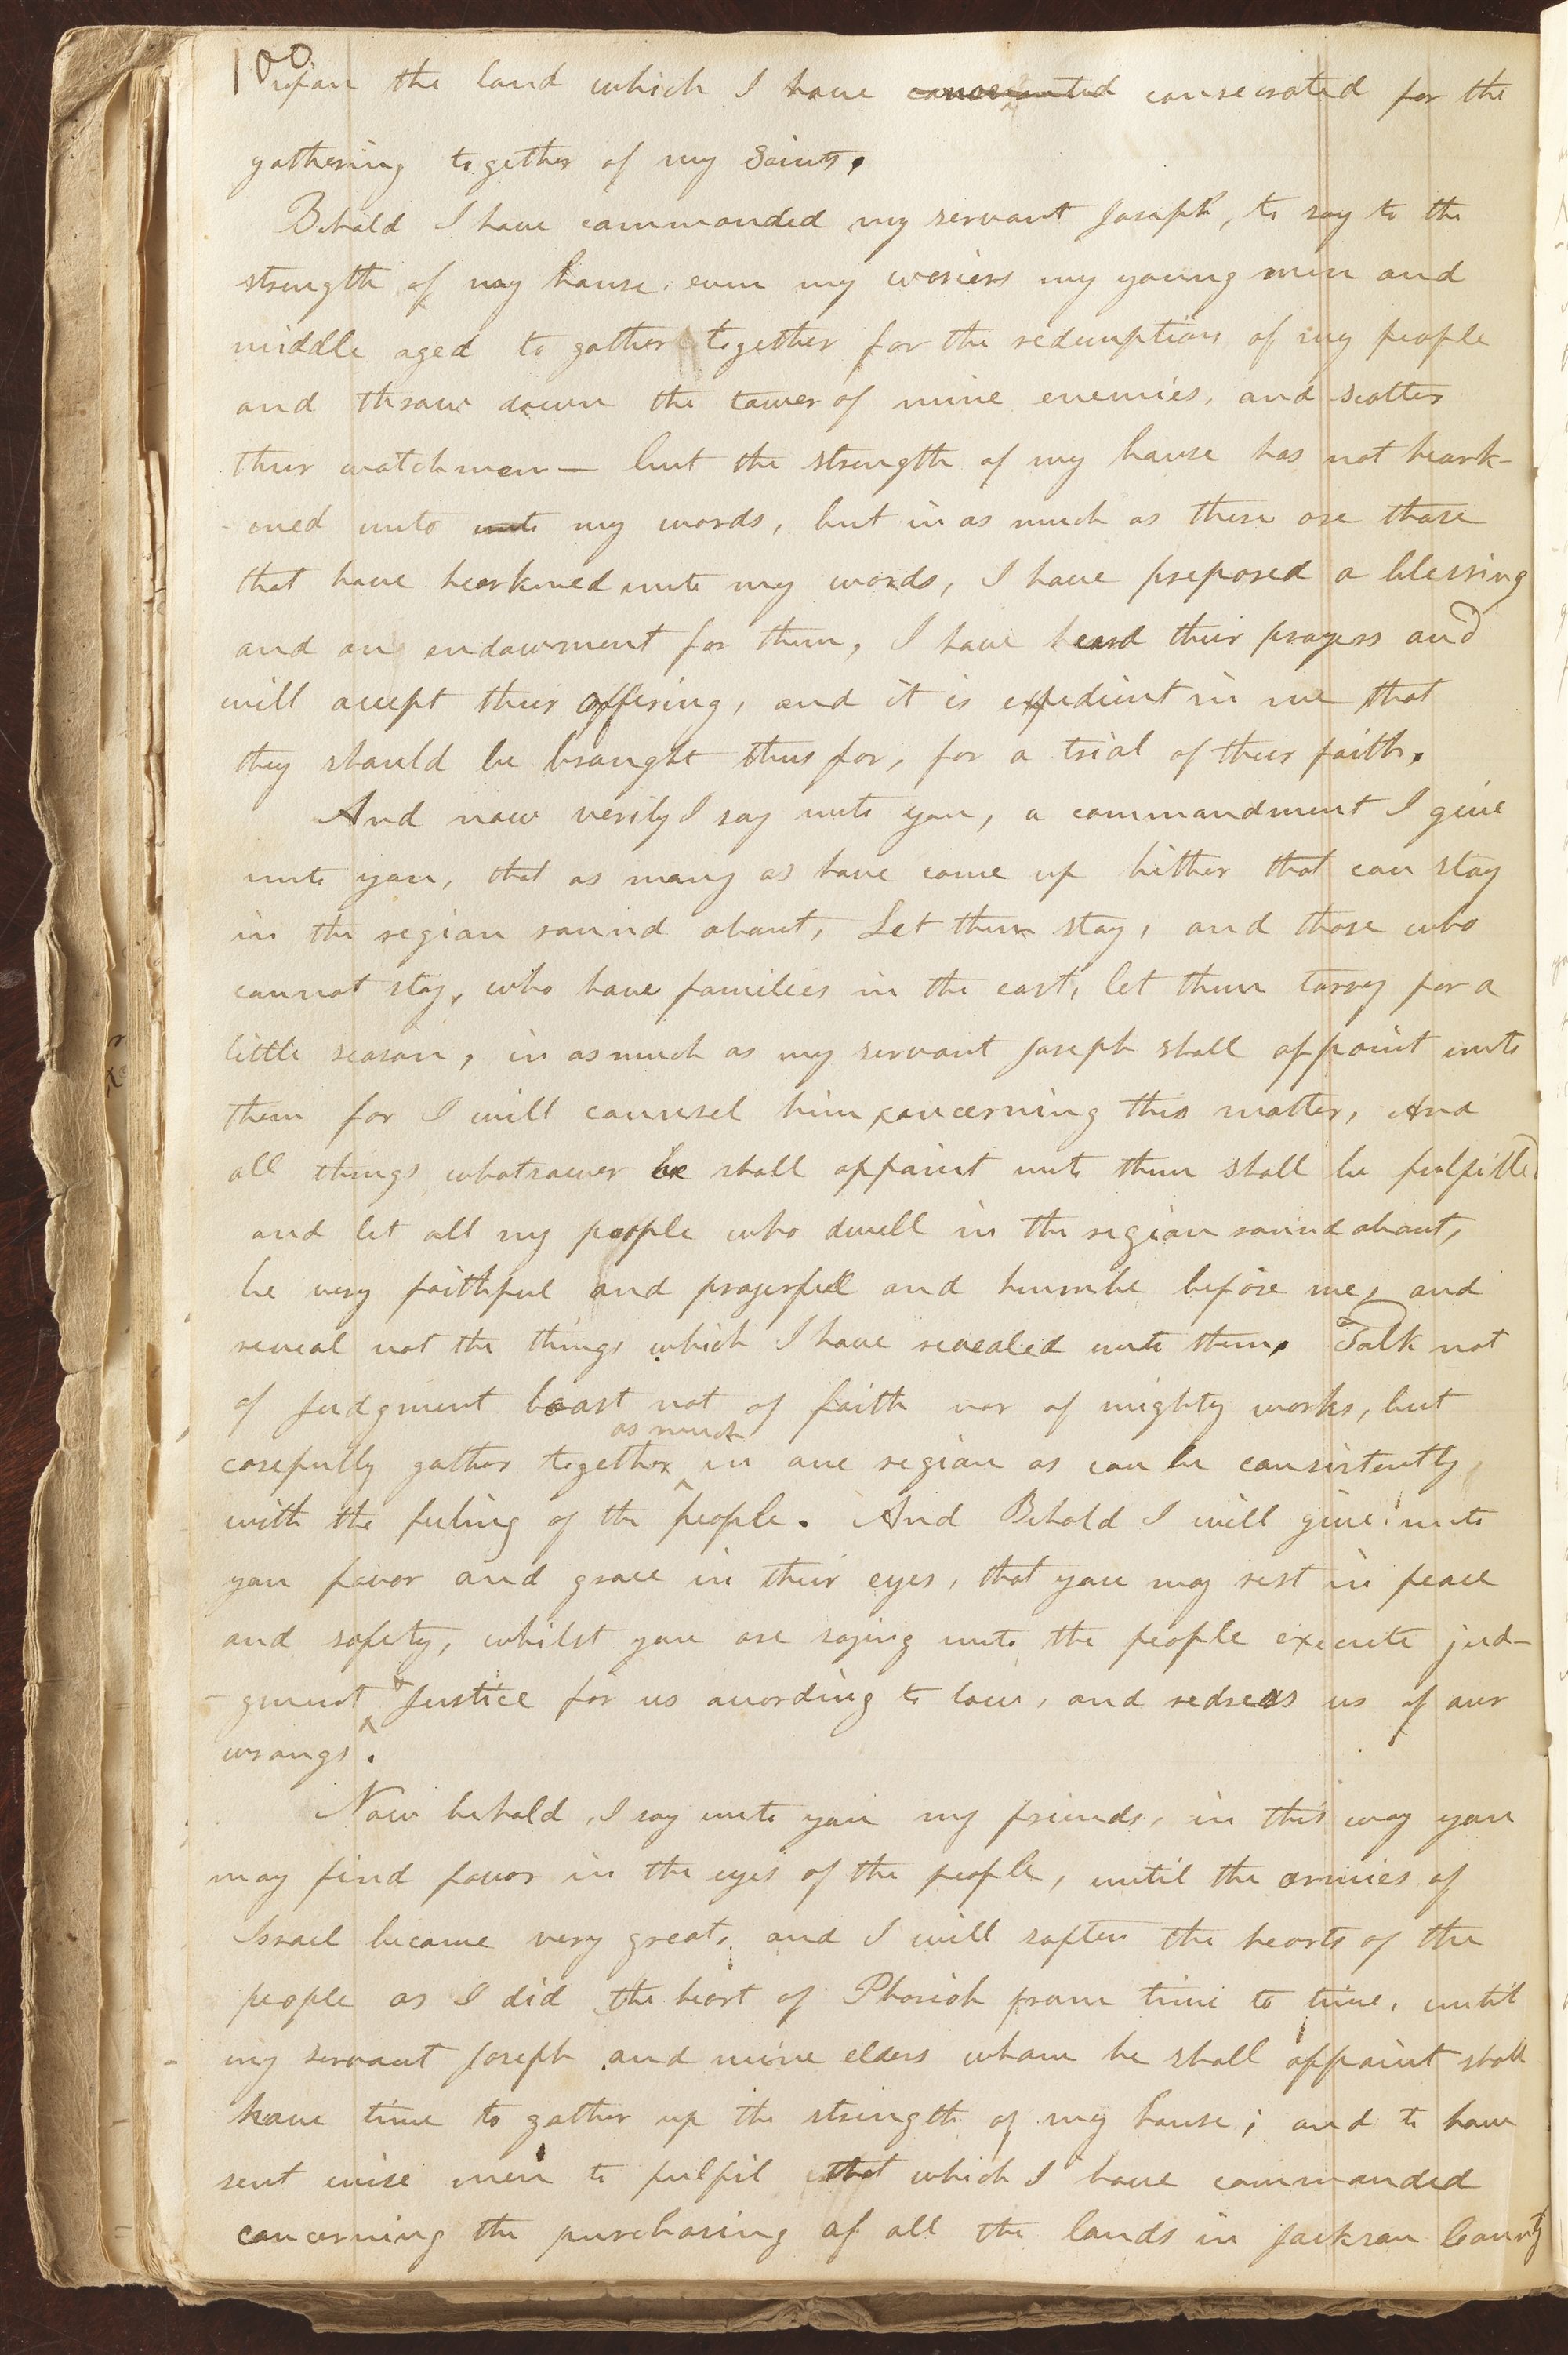 100
upon the land which I have consecrated for the
gathering together of my Saints.
Behold I have commanded my servant Joseph, to say to the
strength of my house, even my woriers my young men and
middle aged to gather together for the redemption of my people
and throw down the tower of mine enemies, and scatter
their watchmen— but the strength of my house has not heark-
-ened unto unto my words, but in as much as there are those
that have hearkened unto my words, I have prepared a blessing
and an endowment for them, I have heard their prayers and
will accept their offering, and it is expedient in me that
they should be brought thus far, for a trial of their faith.
And now verily I say unto you, a commandment I give
unto you, that as many as have come up hither that can stay
in the region round about, Let them stay, and those who
cannot stay, who have families in the east, let them tarry for a
little season, in as much as my servant Joseph shall appoint unto
them for I will counsel him concerning this matter, And
all things whatsoever he shall appoint unto them shall be fulfilled
and let all my people who dwell in the region round about,
be very faithful and prayerfull and humbe before me, and
reveal not the things which I have revealed unto them. Talk not
of Judgment boast not of faith nor of mighty works, but
carefully gather together as much in one region as can be consistently
with the feeling of the people. And Behold I will give unto
you favor and grace in their eyes, that you may rest in peace
and safety, whilst you are saying unto the people execute jud-
-gment & Justice for us acording to law, and redress us of our
wrongs.
Now behold, I say unto you my friends, in this way you
may find favor in the eyes of the people, until the armies of
Israel become very great, and I will soften the hearts of the
people as I did the heart of Pharioh from time to time, until
my servant Joseph and mine elders whom he shall appoint shall
have time to gather up the strength of my house; and to have
sent wise men to fulfil that which I have commanded
concerning the purchasing of all the lands in Jackson County